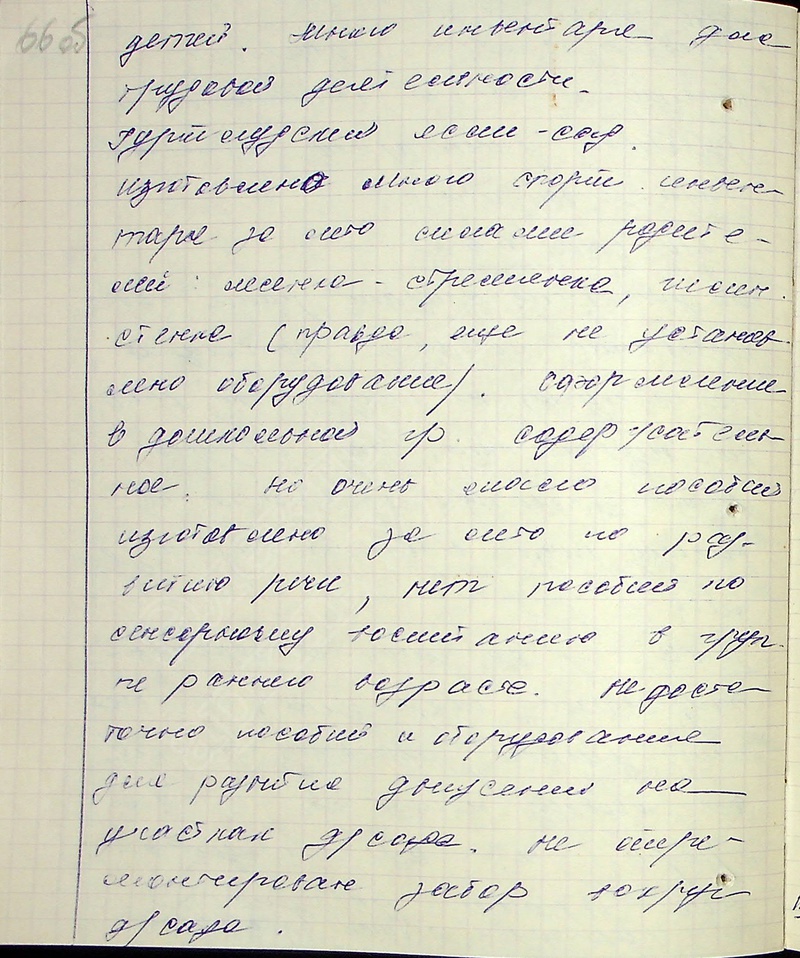 66 об
детей. Много инвентаря для
трудовой деятельности.
Гуртлудский ясли-сад.
изготовлено много спорт. инвен-
таря за лето силами родите-
лей: лесенка-стремянка, гимн.
стенка (правда, еще не установ-
лено оборудование). Оформление
в дошкольной гр. содержатель-
ное. Но очень мало пособий
изготовлено за лето по раз-
витию речи, нет пособий по
сенсорному воспитанию в груп-
пе раннего возраста. Недоста-
точно пособий и оборудования
для развития движений на
участках д/сада. Не отре-
монтирован забор вокруг
д/сада.